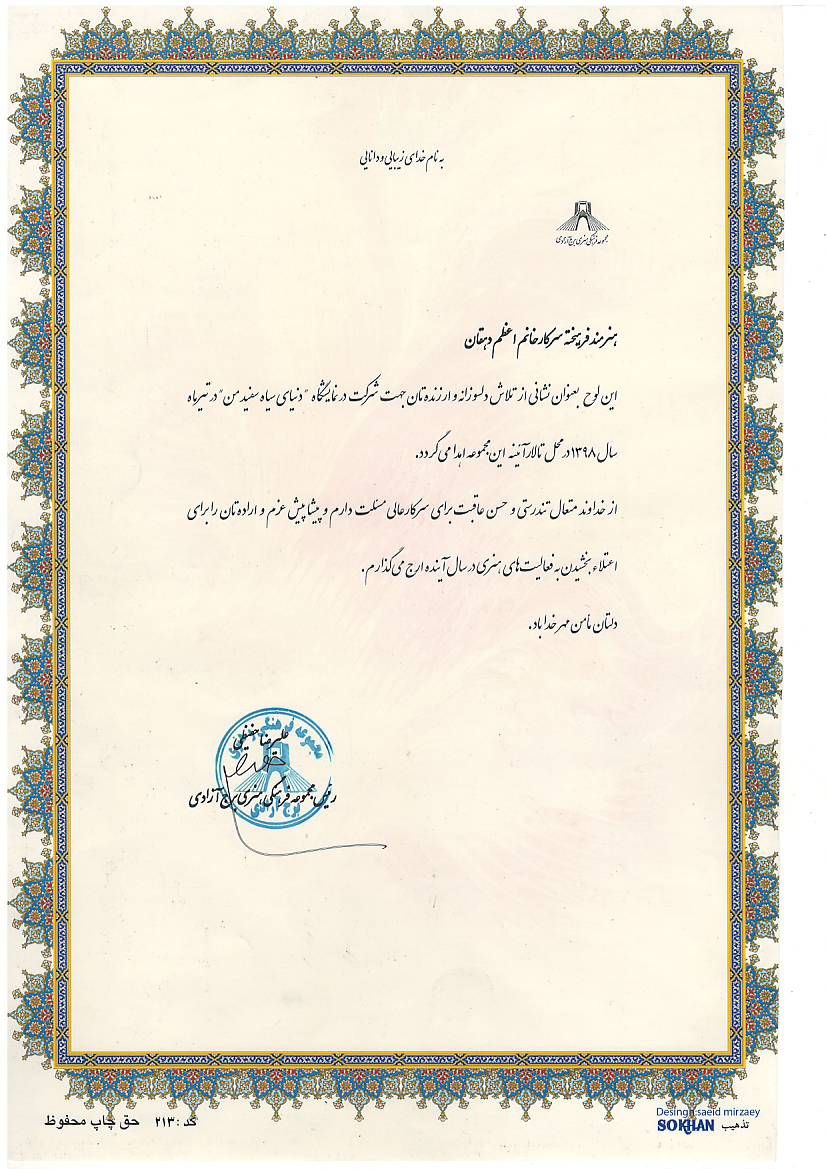 به نام خدای زیبایی و دانایی
مجموعه فرهنگی هنری برج آزادی
هنرمند فرهیخته سرکار خانم اعظم دهقان
این لوح بعنوان نشانی از تلاش دلسوزانه و ارزنده تان جهت شرکت در نمایشگاه "دنیای سیاه سفید من" در تیرماه
سال ۱۳۹۸ در محل تالار آئینه این مجموعه اهدا می گردد.
از خداوند متعال تندرستی و حسن عاقبت برای سرکارعالی مسئلت دارم و پیشاپیش عزم و اراده تان را برای
اعتلاء بخشیدن به فعالیت های هنری در سال آینده ارج می گذارم.
دلتان مأمن مهر خدا باد.
علیرضا
رئیس مجموعه فرهنگی هنری برج آزادی
مجموعه فرهنگی
برج آزادی
Desingn:saeid mirzaey
تذهیب SOKHAN
کد : ۲۱۳ حق چاپ محفوظ